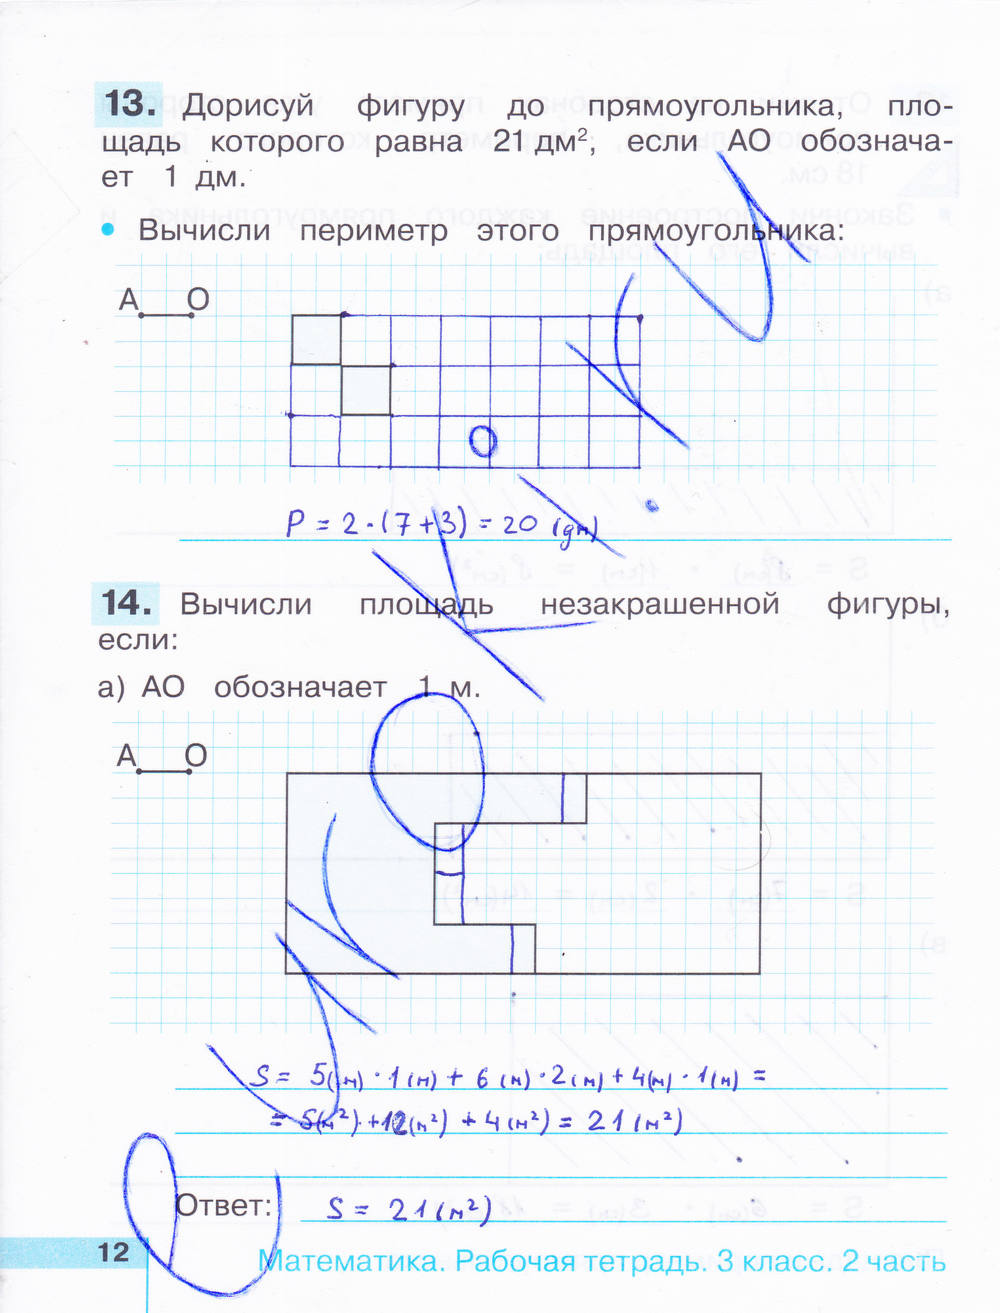 13. Дорисуй фигуру до прямоугольника, пло-
щадь которого равна 21 дм², если АО обознача-
ет 1 дм.
• Вычисли периметр этого прямоугольника:
А О
P = 2·(7+3) = 20 (дм)
14. Вычисли площадь незакрашенной фигуры,
если:
а) АО обозначает 1 м.
А О
S = 5(м)·1(м) + 6(м)·2(м) + 4(м)·1(м) =
= 5(м²) + 12(м²) + 4(м²) = 21(м²)
Ответ: S = 21(м²)
12 Математика. Рабочая тетрадь. 3 класс. 2 часть